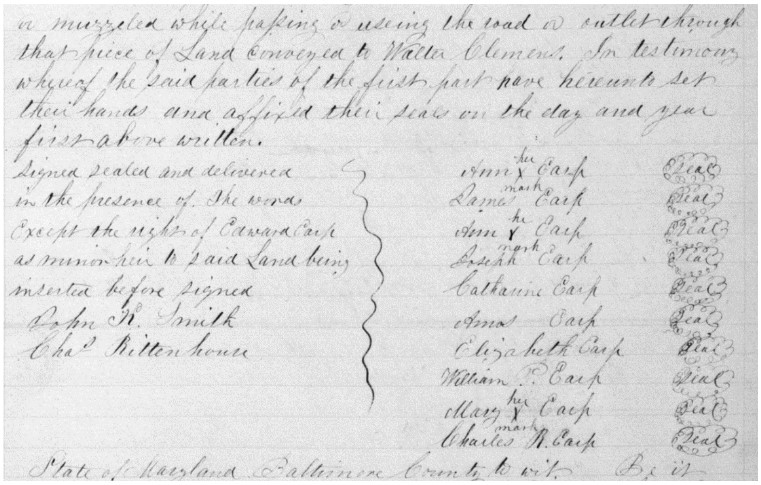 or muzzeled while passing or useing the road or outlet through
that piece of Land conveyed to Walter Clemens. In testimony
whereof the said parties of the first part have hereunto set
their hands and affixed their seals on the day and year
first above written.
Signed sealed and delivered
in the presence of. The words
Except the right of Edward Earp
as minor heir to said Land being
inserted before signed
John H. Smith
Chas Rittenhouse
Ann her x mark Earp Seal
James Earp Seal
Ann her x mark Earp Seal
Joseph Earp Seal
Catharine Earp Seal
Amos Earp Seal
Elizabeth Earp Seal
William P. Earp Seal
Mary her x mark Earp Seal
Charles R. Earp Seal
State of Maryland Baltimore County to wit. Be it